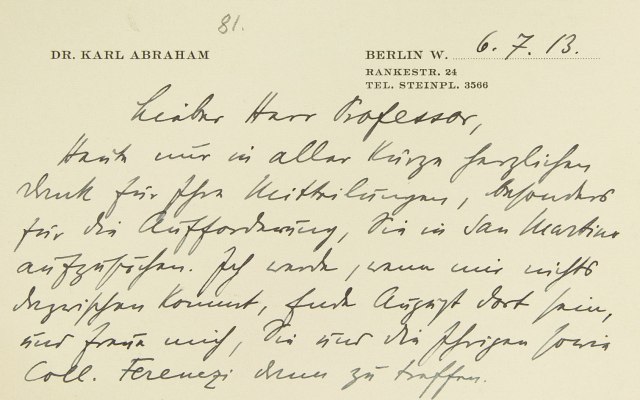 81.
DR. KARL ABRAHAM
BERLIN W. 6. 7. 13.
RANKESTR. 24
TEL. STEINPL. 3566
Lieber Herr Professor,
Heute nur in aller Kürze herzlichen
Dank für Ihre Mitteilungen, besonders
für die Aufforderung, Sie in San Martino
aufzusuchen. Ich werde, wenn mir nichts
dazwischen kommt, Ende August dort sein,
und freue mich, Sie und die Ihrigen sowie
Coll. Ferenczi dann zu treffen.